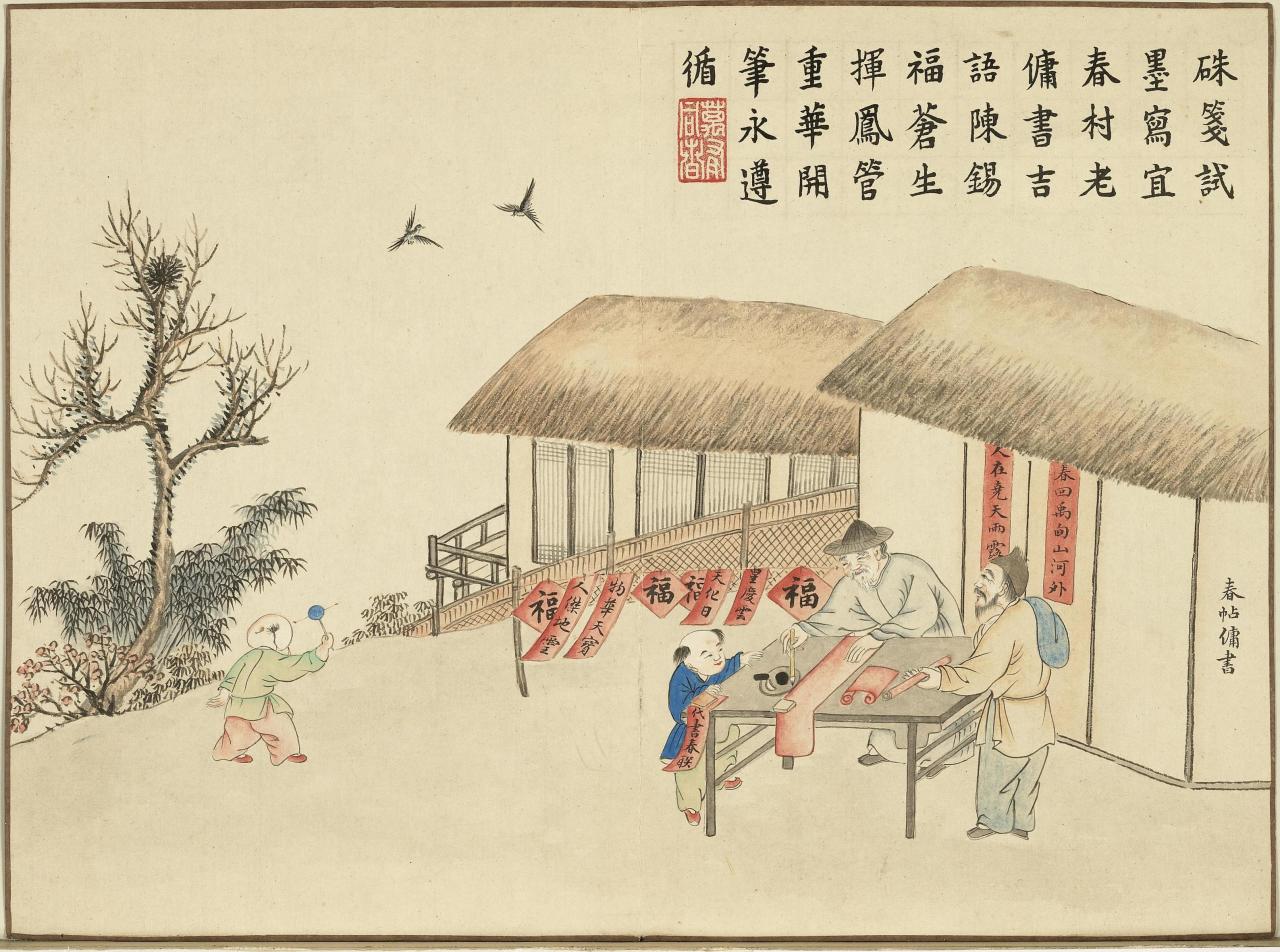 硃箋試
墨寫宜
春村老
傭書吉
語陳錫
福蒼生
揮鳳管
重華開
筆永遵
循
春帖傭書
春回禹甸山河外
人在堯天雨露
福
皇慶雲
天化日
福
福
物華天寶
人傑地靈
福
代書春联